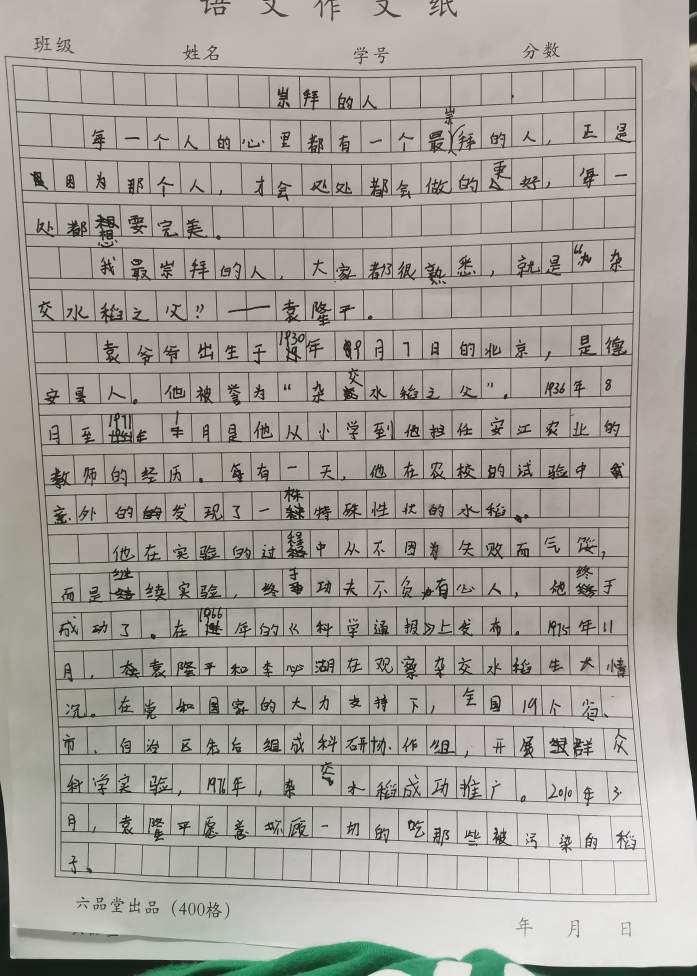 语文作文纸
班级 姓名 学号 分数
崇拜的人
每一个人的心里都有一个最崇拜的人，正是
因为那个人，才会处处都会做的更好，每一
处都想要完美。
我最崇拜的人，大家都很熟悉，就是“杂
交水稻之父”——袁隆平。
袁爷爷出生于1930年9月7日的北京，是德
安县人。他被誉为“杂交水稻之父”。1936年8
月至1971年1月是他从小学到他担任安江农业的
教师的经历。每有一天，他在农校的试验中
意外的发现了一株特殊性状的水稻。
他在实验的过程中从不因为失败而气馁，
而是继续实验，终于功夫不负有心人，他终于
成功了。在1966年的《科学通报》上发布。1975年11
月，袁隆平和李必湖在观察杂交水稻生长情
况。在党和国家的大力支持下，全国19个省、
市、自治区先后组成科研协作组，开展群众
科学实验，1976年，杂交水稻成功推广。2010年3
月，袁隆平愿意不顾一切的吃那些被污染的稻
子、
六品堂出品（400格）
年 月 日